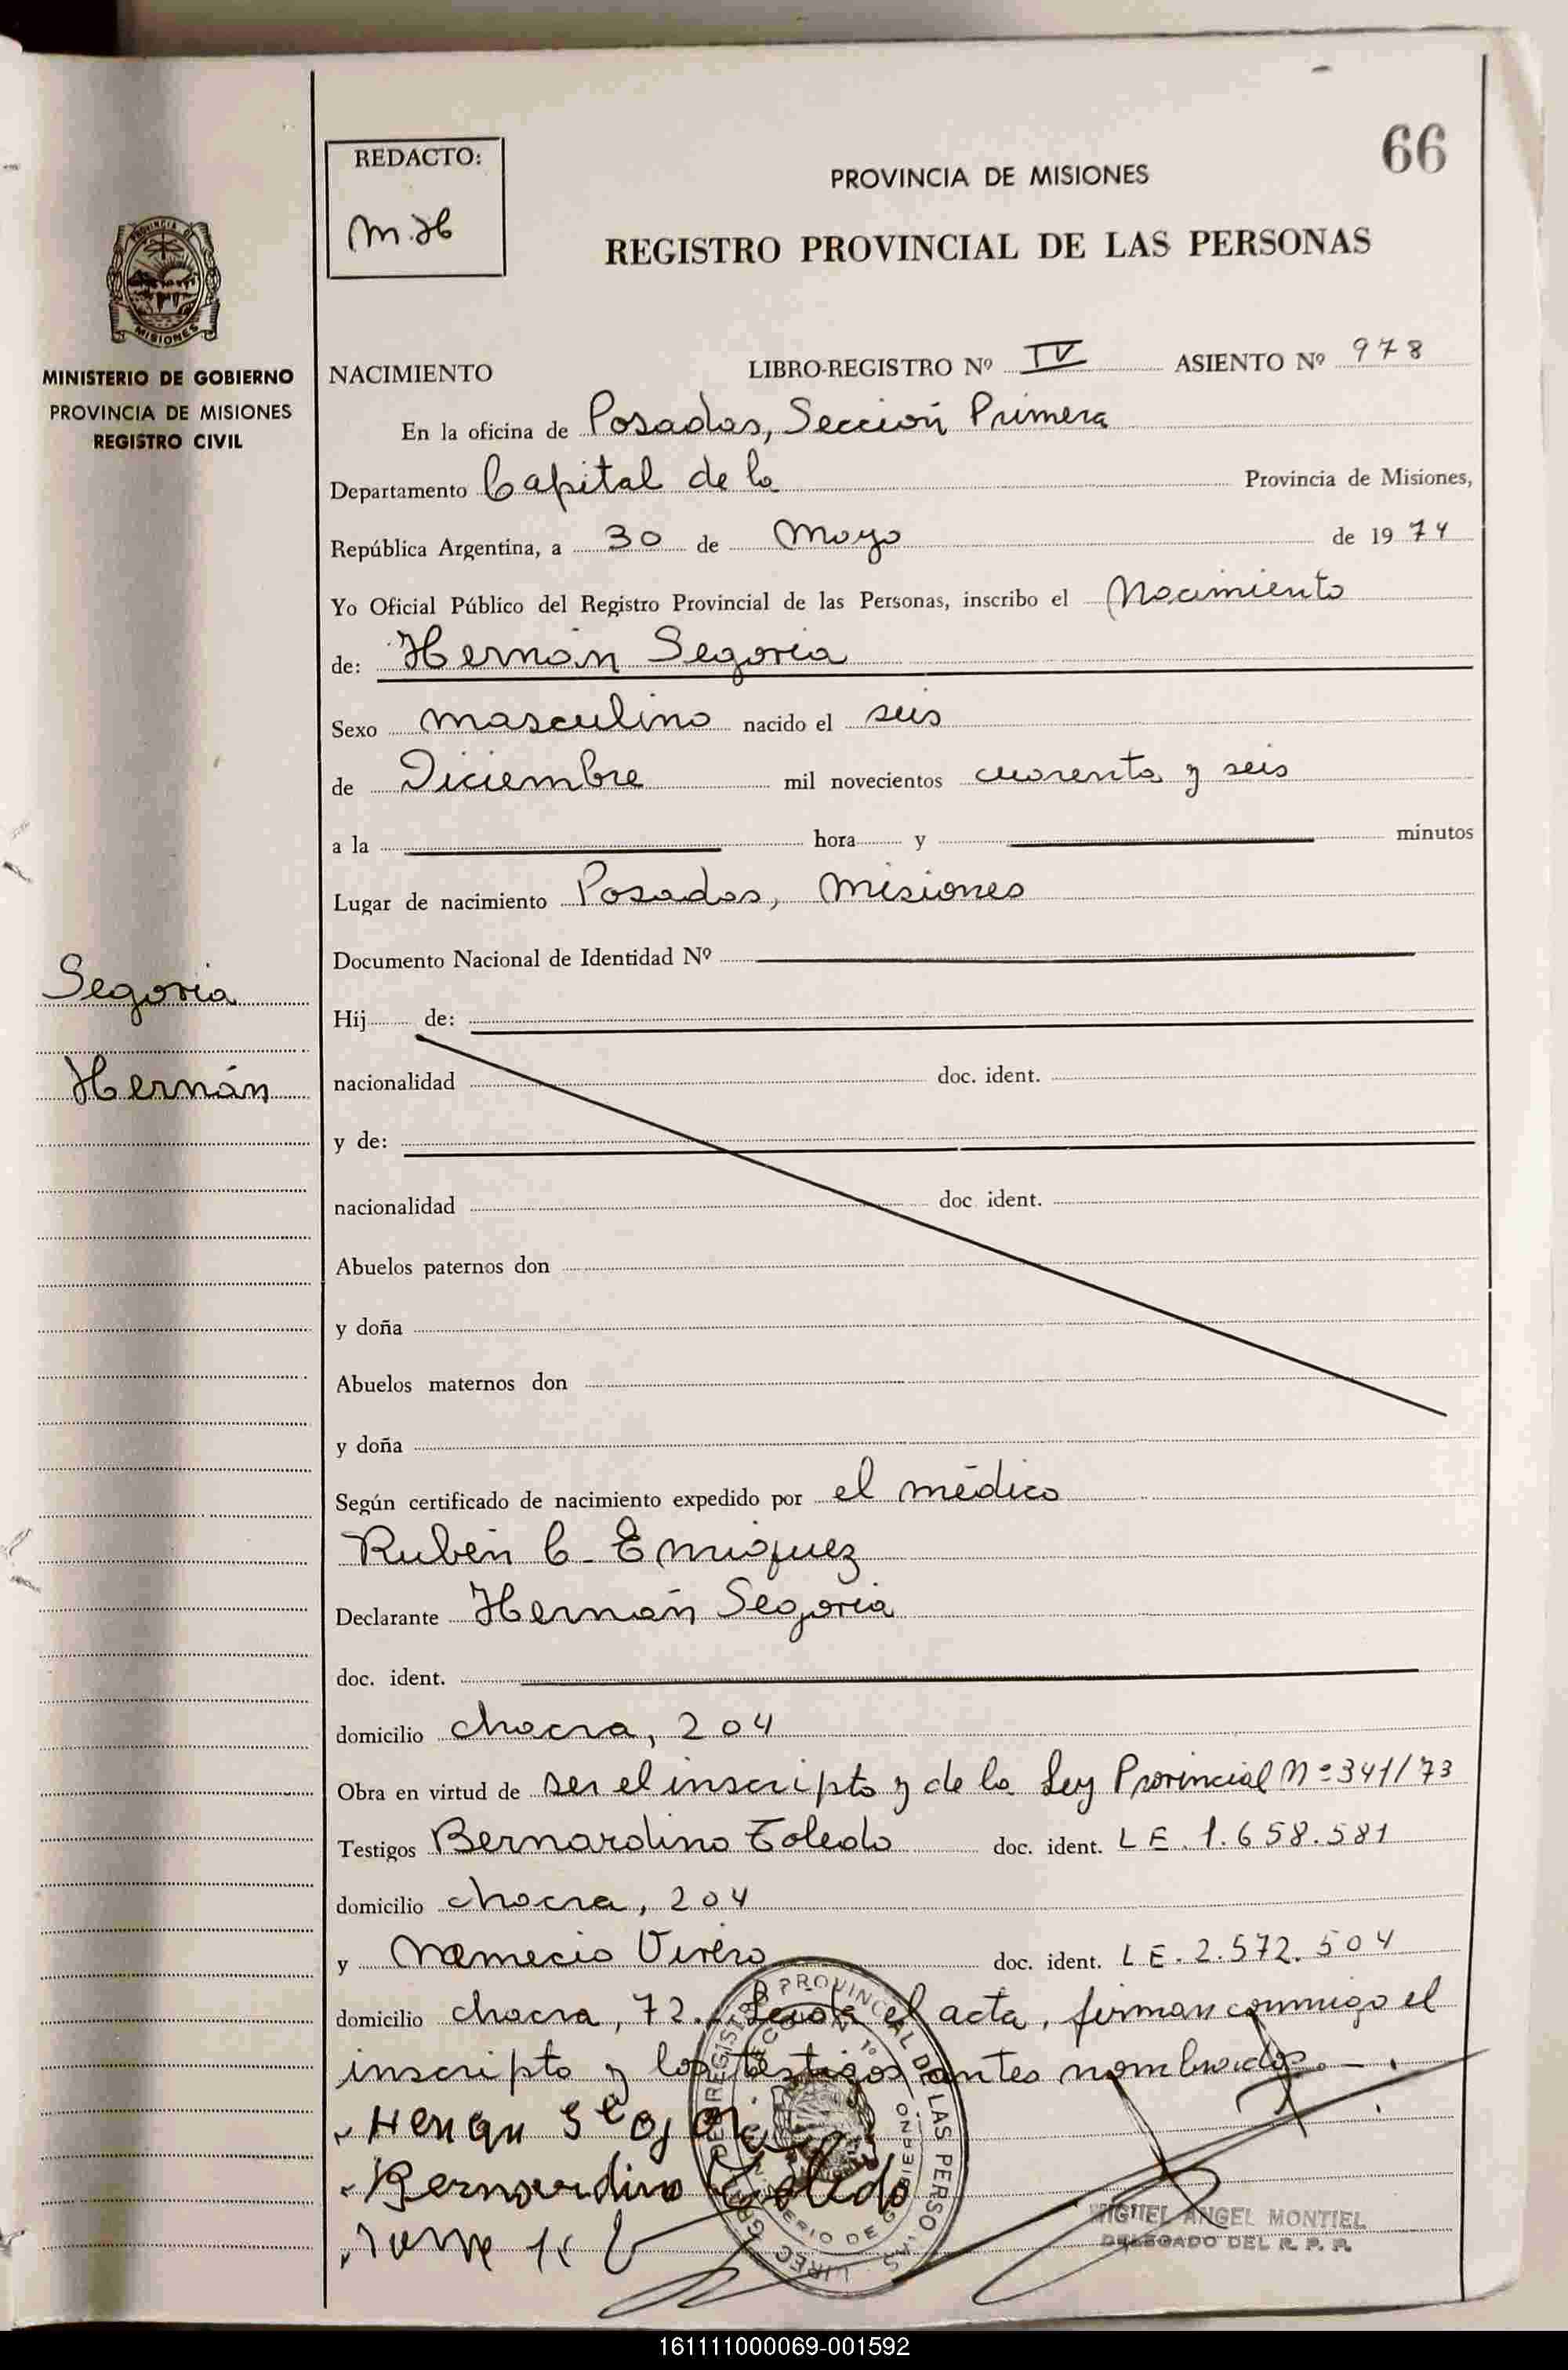 66
REDACTO:
M.H
PROVINCIA DE MISIONES
REGISTRO PROVINCIAL DE LAS PERSONAS
MINISTERIO DE GOBIERNO
PROVINCIA DE MISIONES
REGISTRO CIVIL
NACIMIENTO LIBRO-REGISTRO Nº IV ASIENTO Nº 978
En la oficina de Posadas, Sección Primera
Departamento Capital de la Provincia de Misiones,
República Argentina, a 30 de Mayo de 1974
Yo Oficial Público del Registro Provincial de las Personas, inscribo el Nacimiento
de: Hernán Segovia
Sexo masculino nacido el seis
de Diciembre mil novecientos cuarenta y seis
a la hora y minutos
Lugar de nacimiento Posadas, Misiones
Documento Nacional de Identidad Nº
Segovia
Hernán
Hij de:
nacionalidad doc. ident.
y de:
nacionalidad doc. ident.
Abuelos paternos don
y doña
Abuelos maternos don
y doña
Según certificado de nacimiento expedido por el médico
Rubén C. Enriquez
Declarante Hernán Segovia
doc. ident.
domicilio chacra, 204
Obra en virtud de ser el inscripto y de la Ley Provincial Nº 341/73
Testigos Bernardino Toledo doc. ident. L E. 1.658.581
domicilio chacra, 204
y Nemecio Vivero doc. ident. L E. 2.572.504
domicilio chacra, 72. Leida el acta, firman conmigo el
inscripto y los testigos antes nombrados. -.
Hernan Segovia
Bernardino Toledo
REGISTRO PROVINCIAL DE LAS PERSONAS
MINISTERIO DE GOBIERNO
MIGUEL ANGEL MONTIEL
DELEGADO DEL R. P. P.
161111000069-001592